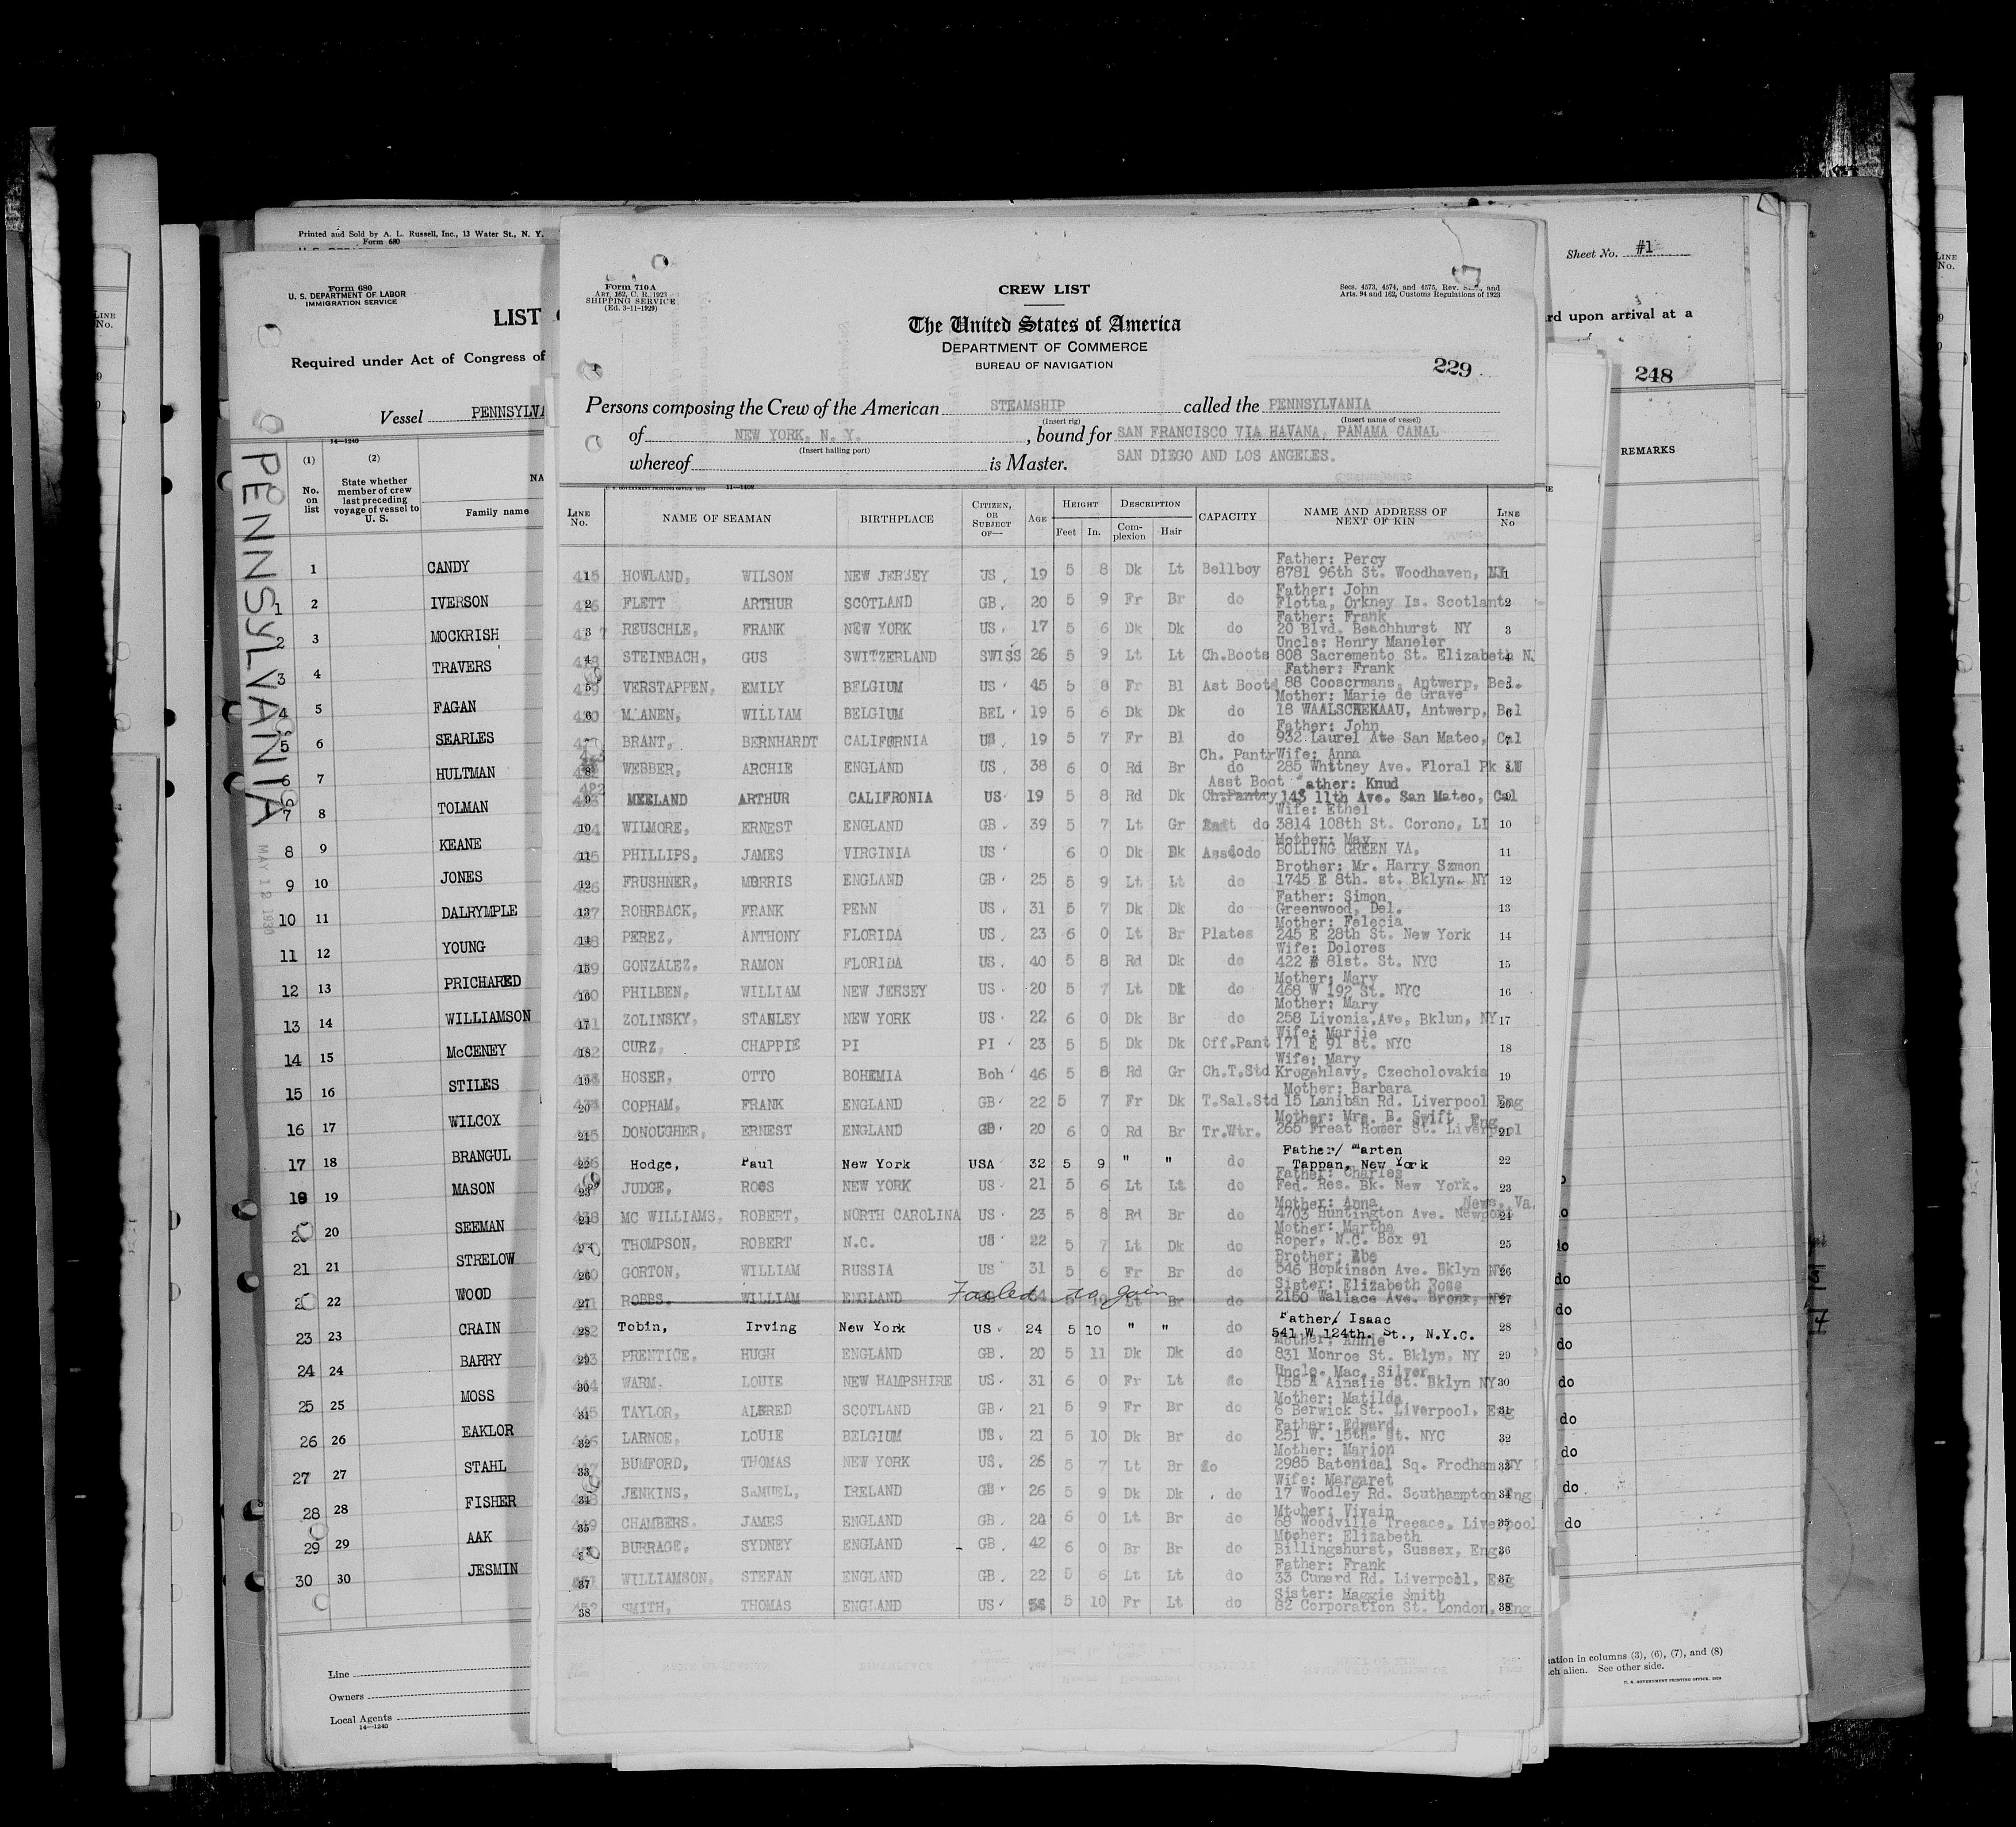 Printed and Sold by A. L. Russell, Inc., 13 Water St., N. Y.
Form 680
Form 680
U. S. DEPARTMENT OF LABOR
IMMIGRATION SERVICE
LIST
Required under Act of Congress of
Vessel PENNSYLVA
14—1240
(1) (2)
No. on list
State whether member of crew last preceding voyage of vessel to U. S.
NA
Family name
PENNSYLVANIA
MAY 12 1930
1 CANDY
1 2 IVERSON
2 3 MOCKRISH
3 4 TRAVERS
4 5 FAGAN
5 6 SEARLES
6 7 HULTMAN
7 8 TOLMAN
8 9 KEANE
9 10 JONES
10 11 DALRYMPLE
11 12 YOUNG
12 13 PRICHARED
13 14 WILLIAMSON
14 15 McCENEY
15 16 STILES
16 17 WILCOX
17 18 BRANGUL
18 19 MASON
20 SEEMAN
21 21 STRELOW
22 WOOD
23 23 CRAIN
24 24 BARRY
25 25 MOSS
26 26 EAKLOR
27 27 STAHL
28 28 FISHER
29 29 AAK
30 30 JESMIN
Line
Owners
Local Agents
14—1240
Form 710A
Art. 162, C. R. 1923
SHIPPING SERVICE
(Ed. 3-11-1929)
CREW LIST
Secs. 4573, 4574, and 4575, Rev. and
Arts. 94 and 162, Customs Regulations of 1923
The United States of America
DEPARTMENT OF COMMERCE
BUREAU OF NAVIGATION
229
Persons composing the Crew of the American STEAMSHIP called the PENNSYLVANIA
(Insert rig) (Insert name of vessel)
of NEW YORK, N. Y. , bound for SAN FRANCISCO VIA HAVANA, PANAMA CANAL
(Insert hailing port)
whereof is Master. SAN DIEGO AND LOS ANGELES.
U. S. GOVERNMENT PRINTING OFFICE: 1929 11—1408
LINE No. NAME OF SEAMAN BIRTHPLACE CITIZEN, OR SUBJECT OF— AGE HEIGHT DESCRIPTION CAPACITY NAME AND ADDRESS OF NEXT OF KIN LINE No
Feet In. Complexion Hair
Father: Percy
1 HOWLAND, WILSON NEW JERSEY US 19 5 8 Dk Lt Bellboy 8781 96th St. Woodhaven, NJ 1
Father: John
2 FLETT ARTHUR SCOTLAND GB 20 5 9 Fr Br do Flotta, Orkney Is. Scotlant 2
Father: Frank
3 REUSCHLE, FRANK NEW YORK US 17 5 6 Dk Dk do 20 Blvd. Beachhurst NY 3
Uncle: Henry Maneler
4 STEINBACH, GUS SWITZERLAND SWISS 26 5 9 Lt Lt Ch.Boots 808 Sacremento St. Elizabeth N.
Father: Frank
5 VERSTAPPEN, EMILY BELGIUM US 45 5 8 Fr Bl Ast Boots 88 Cooscrmans, Antwerp, Bel.
Mother: Marie de Grave
6 M.ANEN, WILLIAM BELGIUM BEL 19 5 6 Dk Dk do 18 WAALSCHEKAAU, Antwerp, Bel 6
Father: John
BRANT, BERNHARDT CALIFORNIA US 19 5 7 Fr Bl do 932 Laurel Ate San Mateo, Cal 7
Ch. Pantr Wife: Anna
8 WEBBER, ARCHIE ENGLAND US 38 6 0 Rd Br do 285 Whttney Ave. Floral Pk
Asst Boot ather: Knud
9 MEELAND ARTHUR CALIFRONIA US 19 5 8 Rd Dk Ch.Pantry 143 11th Ave. San Mateo, Cal
Wife: Ethel
10 WILMORE, ERNEST ENGLAND GB 39 5 7 Lt Gr do 3814 108th St. Corono, LI 10
Mother: May
11 PHILLIPS, JAMES VIRGINIA US 6 0 Dk Dk Asst do BOLLING GREEN VA, 11
Brother: Mr. Harry Szmon
12 FRUSHNER, MORRIS ENGLAND GB 25 5 9 Lt Lt do 1745 E 8th. st. Bklyn. NY 12
Father: Simon
13 ROHRBACK, FRANK PENN US 31 5 7 Dk Dk do Greenwood, Del. 13
Mother: Felecia
14 PEREZ, ANTHONY FLORIDA US 23 6 0 Lt Br Plates 245 E 28th St. New York 14
Wife: Dolores
15 GONZALEZ, RAMON FLORIDA US 40 5 8 Rd Dk do 422 81st. St. NYC 15
Mother: Mary
16 PHILBEN, WILLIAM NEW JERSEY US 20 5 7 Lt Dk do 468 W 192 St. NYC 16
Mother: Mary
17 ZOLINSKY, STANLEY NEW YORK US 22 6 0 Dk Br do 258 Livonia,Ave, Bklun, NY 17
Wife: Marjie
18 CURZ, CHAPPIE PI PI 23 5 5 Dk Dk Off.Pant 171 E 91 st. NYC 18
Wife: Mary
19 HOSER, OTTO BOHEMIA Boh 46 5 8 Rd Gr Ch.T.Std Krogehlavy, Czecholovakia 19
Mother: Barbara
20 COPHAM, FRANK ENGLAND GB 22 5 7 Fr Dk T.Sal.Std 15 Laniban Rd. Liverpool Eng
Mother: Mrs. B. Swift Eng.
21 DONOUGHER, ERNEST ENGLAND GB 20 6 0 Rd Br Tr.Wtr. 265 Freat Homer St. Liverpool
Father/ Marten
22 Hodge, Paul New York USA 32 5 9 " " do Tappan, New York 22
Father: Charles
23 JUDGE, ROSS NEW YORK US 21 5 6 Lt Lt do Fed. Res. Bk. New York. 23
Mother: Anna News, Va.
24 MC WILLIAMS, ROBERT, NORTH CAROLINA US 23 5 8 Rd Br do 4703 Huntington Ave. Newport 24
Mother: Martha
THOMPSON, ROBERT N.C. US 22 5 7 Lt Dk do Roper, N.C. Box 91 25
Brother: Abe
26 GORTON, WILLIAM RUSSIA US 31 5 6 Fr Br do 546 Hopkinson Ave. Bklyn NY 26
Sister: Elizabeth Ross
27 ROBBS, WILLIAM ENGLAND Failed to join Lt Br do 2150 Wallace Ave. Bronx, NY 27
Father/ Isaac
28 Tobin, Irving New York US 24 5 10 " " do 541 W 124th. St., N.Y.C. 28
Mother: Annie
29 PRENTICE, HUGH ENGLAND GB 20 5 11 Dk Dk do 831 Monroe St. Bklyn, NY 29
Uncle. Mac. Silver
30 WARM. LOUIE NEW HAMPSHIRE US 31 6 0 Fr Lt do 155 A Ainslie St. Bklyn NY 30
Mother: Matilda
31 TAYLOR, ALFRED SCOTLAND GB 21 5 9 Fr Br do 6 Berwick St. Liverpool, Eng
Father: Edward
32 LARNOE, LOUIE BELGIUM US 21 5 10 Dk Br do 251 W. 15th. St. NYC 32
Mother: Marion
33 BUMFORD, THOMAS NEW YORK US 26 5 7 Lt Br do 2985 Batonical Sq. Frodham NY
Wife: Margaret
34 JENKINS, SAMUEL, IRELAND GB 26 5 9 Dk Dk do 17 Woodley Rd. Southampton Eng
Mtoher: Vivain
35 CHAMBERS. JAMES ENGLAND GB 24 6 0 Lt Br do 68 Woodville Treeace, Liverpool
Mother: Elizabeth
BURRAGE, SYDNEY ENGLAND GB 42 6 0 Br Br do Billingshurst, Sussex, Eng 36
Father: Frank
37 WILLIAMSON, STEFAN ENGLAND GB 22 5 6 Lt Lt do 33 Cunard Rd. Liverpool, Eng
Sister: Maggie Smith
38 SMITH, THOMAS ENGLAND US 5 10 Fr Lt do 82 Corporation St. London, Eng
Sheet No. #1
rd upon arrival at a
248
REMARKS
do
do
do
do
do
do
do
do
ation in columns (3), (6), (7), and (8)
ch alien. See other side.
U. S. GOVERNMENT PRINTING OFFICE: 1929
LINE No.
LINE No.